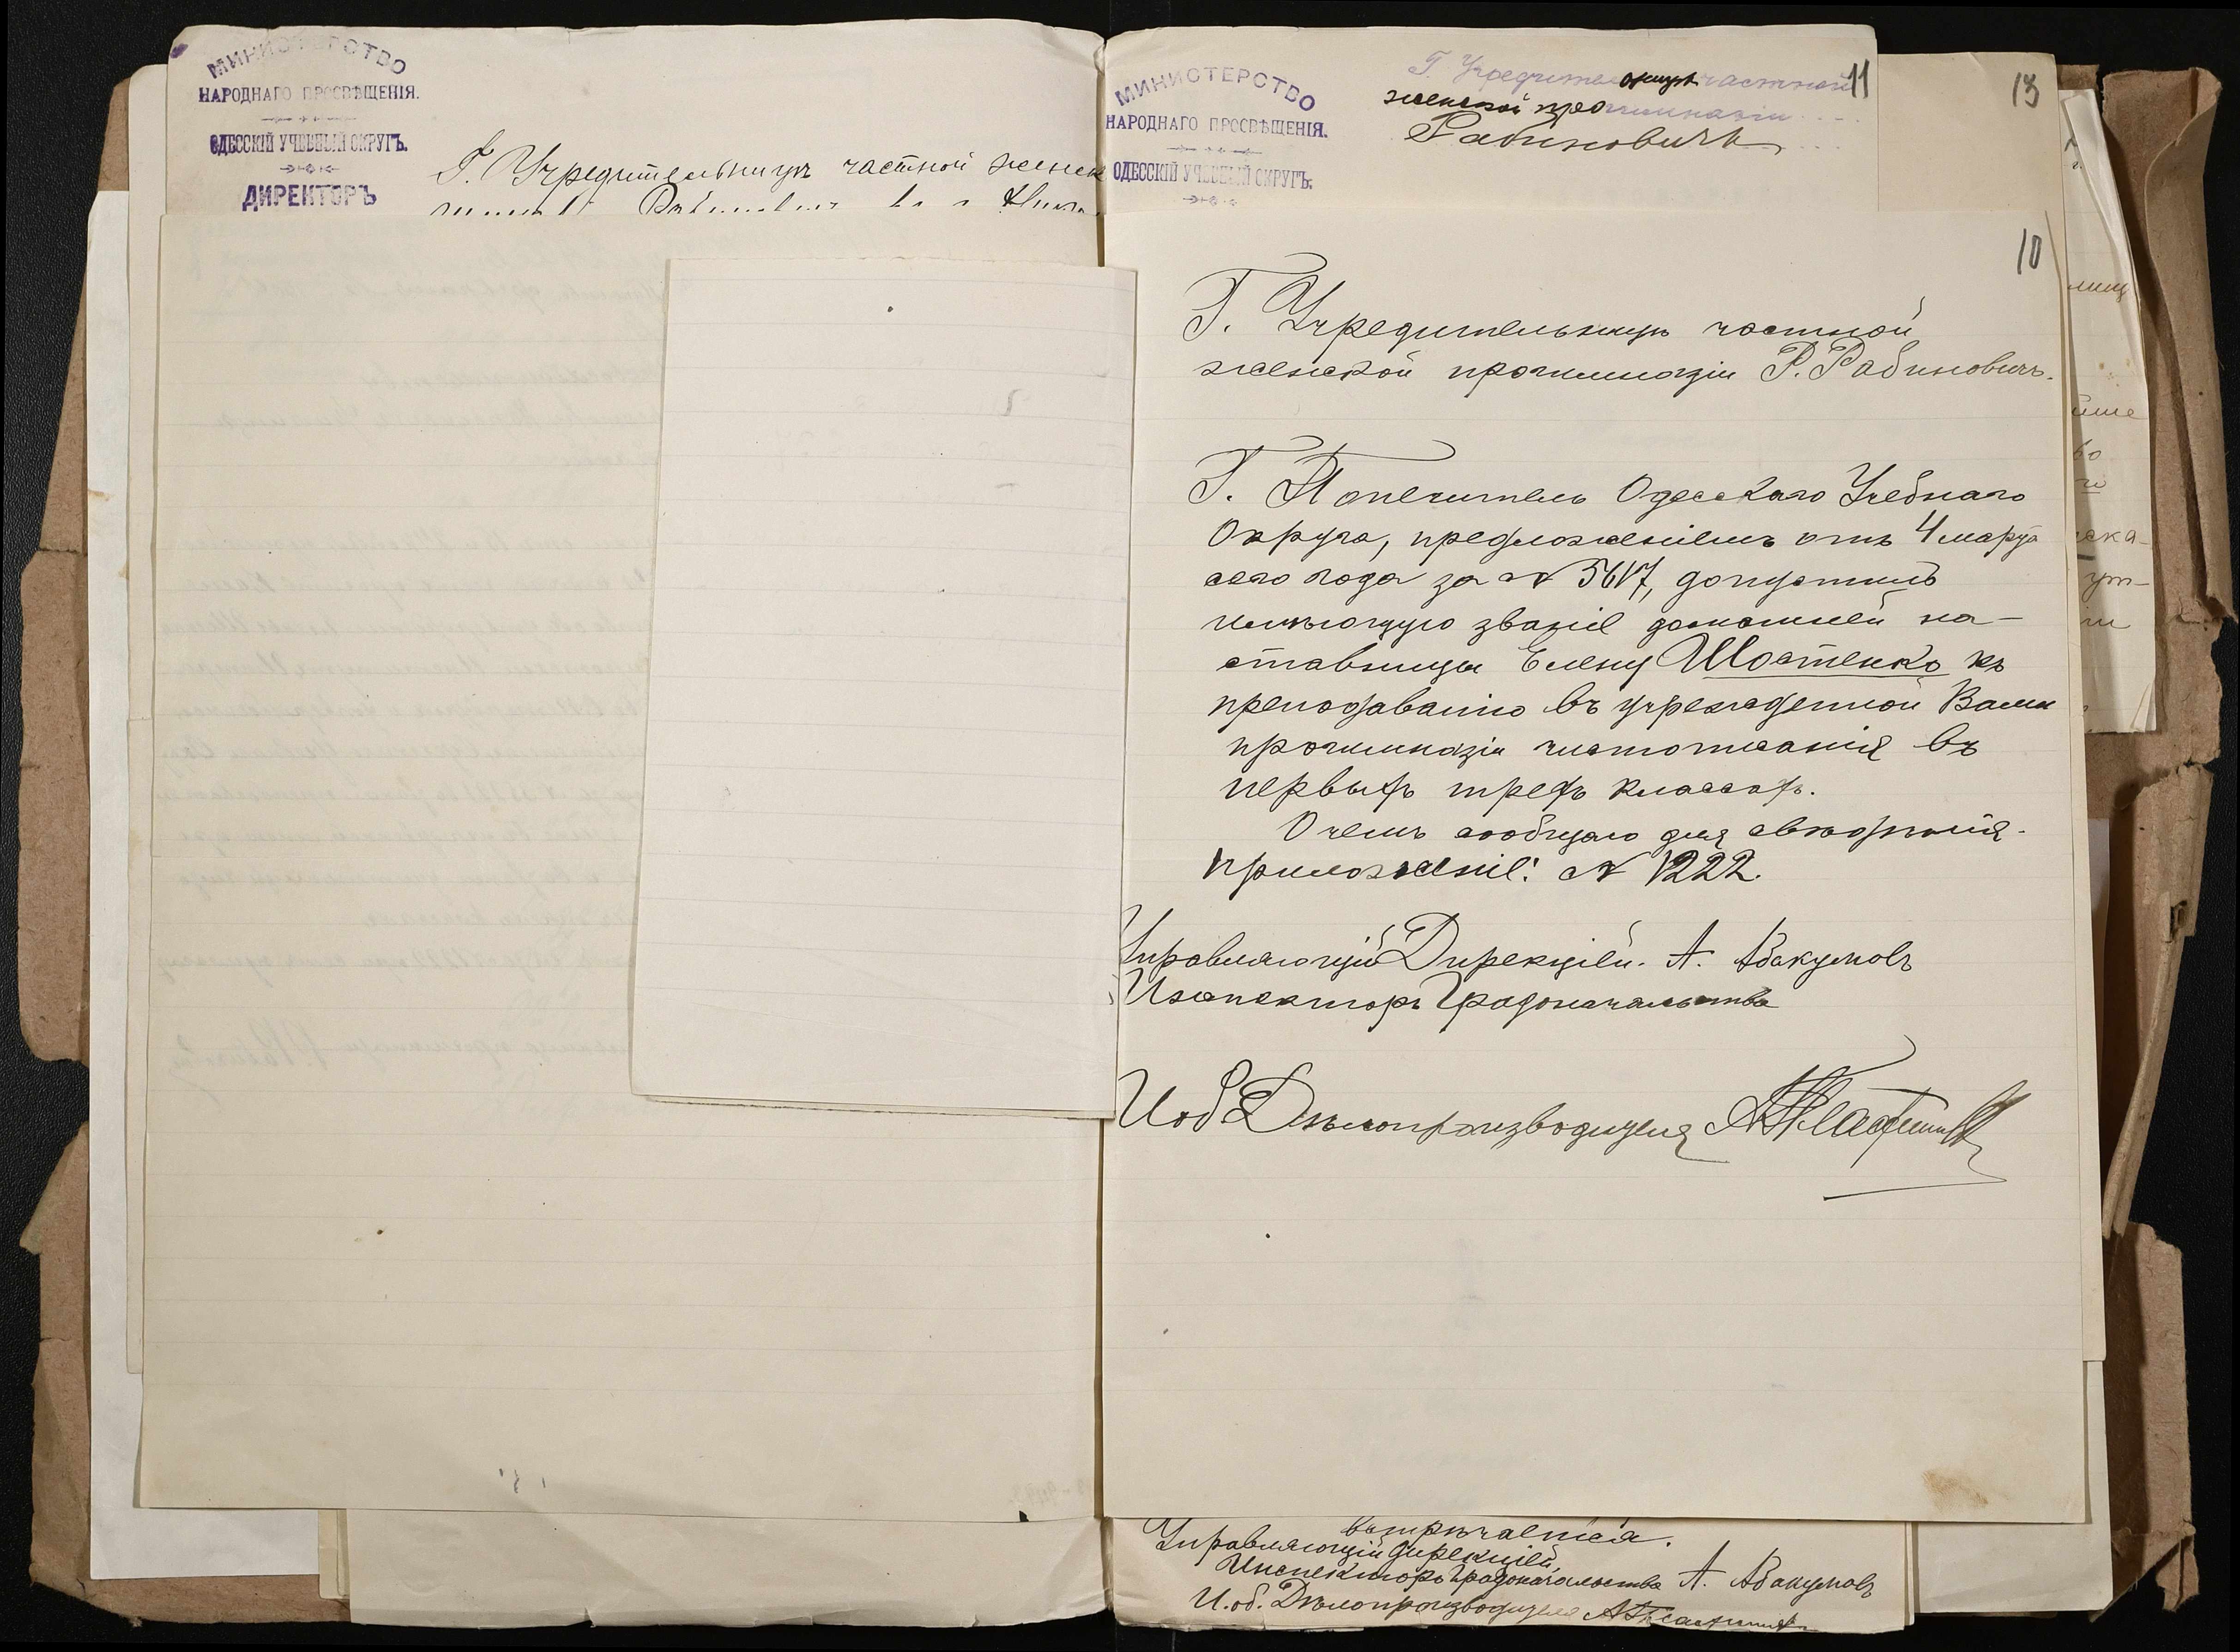 МИНИСТЕРСТВО
НАРОДНАГО ПРОСВѢЩЕНІЯ.
ОДЕССКІЙ УЧЕБНЫЙ ОКРУГЪ.
ДИРЕКТОРЪ
Г. Учредительницѣ частной женск
МИНИСТЕРСТВО
НАРОДНАГО ПРОСВѢЩЕНІЯ.
ОДЕССКІЙ УЧЕБНЫЙ ОКРУГЪ.
Г. Учредительницѣ частной
женской прогимназіи
Рабиновичъ
11
13
10
Г. Учредительницѣ частной
женской прогимназіи Р. Рабиновичъ.
Г. Попечитель Одесскаго Учебнаго
Округа, предложеніемъ отъ 4 марта
сего года за № 5617, допустилъ
имѣющую званіе домашней на-
ставницы Елену Шостенко къ
преподаванію въ учрежденной Вами
прогимназіи чистописанія въ
первыхъ трехъ классахъ.
О чемъ сообщаю для свѣдѣнія.
Приложеніе: № 1222.
Управляющій Дирекціей. А. Абакумовъ
Инспекторъ Градоначальства
И об Дѣлопроизводителя
встрѣчается.
Управляющій Дирекціей,
Инспекторъ Градоначальства А. Абакумовъ
И. об. Дѣлопроизводителя